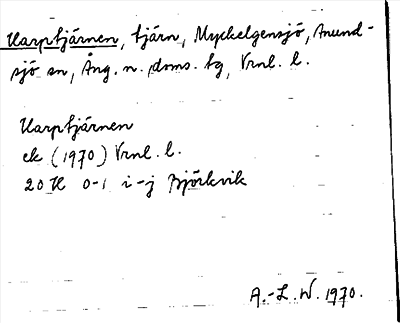 Harptjärnen, tjärn, Myckelgensjö, Anund-
sjö sn, Ång. n. doms. tg, Vrnl. l.
Harptjärnen
ek (1970) Vrnl. l.
20 H 0-1 i-j Björkvik
A.-L. W. 1970.